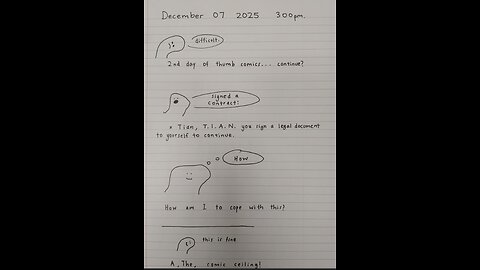 December 07 2025 300pm.
difficult.
2nd day of thumb comics... continue?
signed a
contract!
x Tian, T.I.A.N. you sign a legal document
to yourself to continue.
HOW
How am I to cope with this?
this is fine
A. The. comic ceiling!